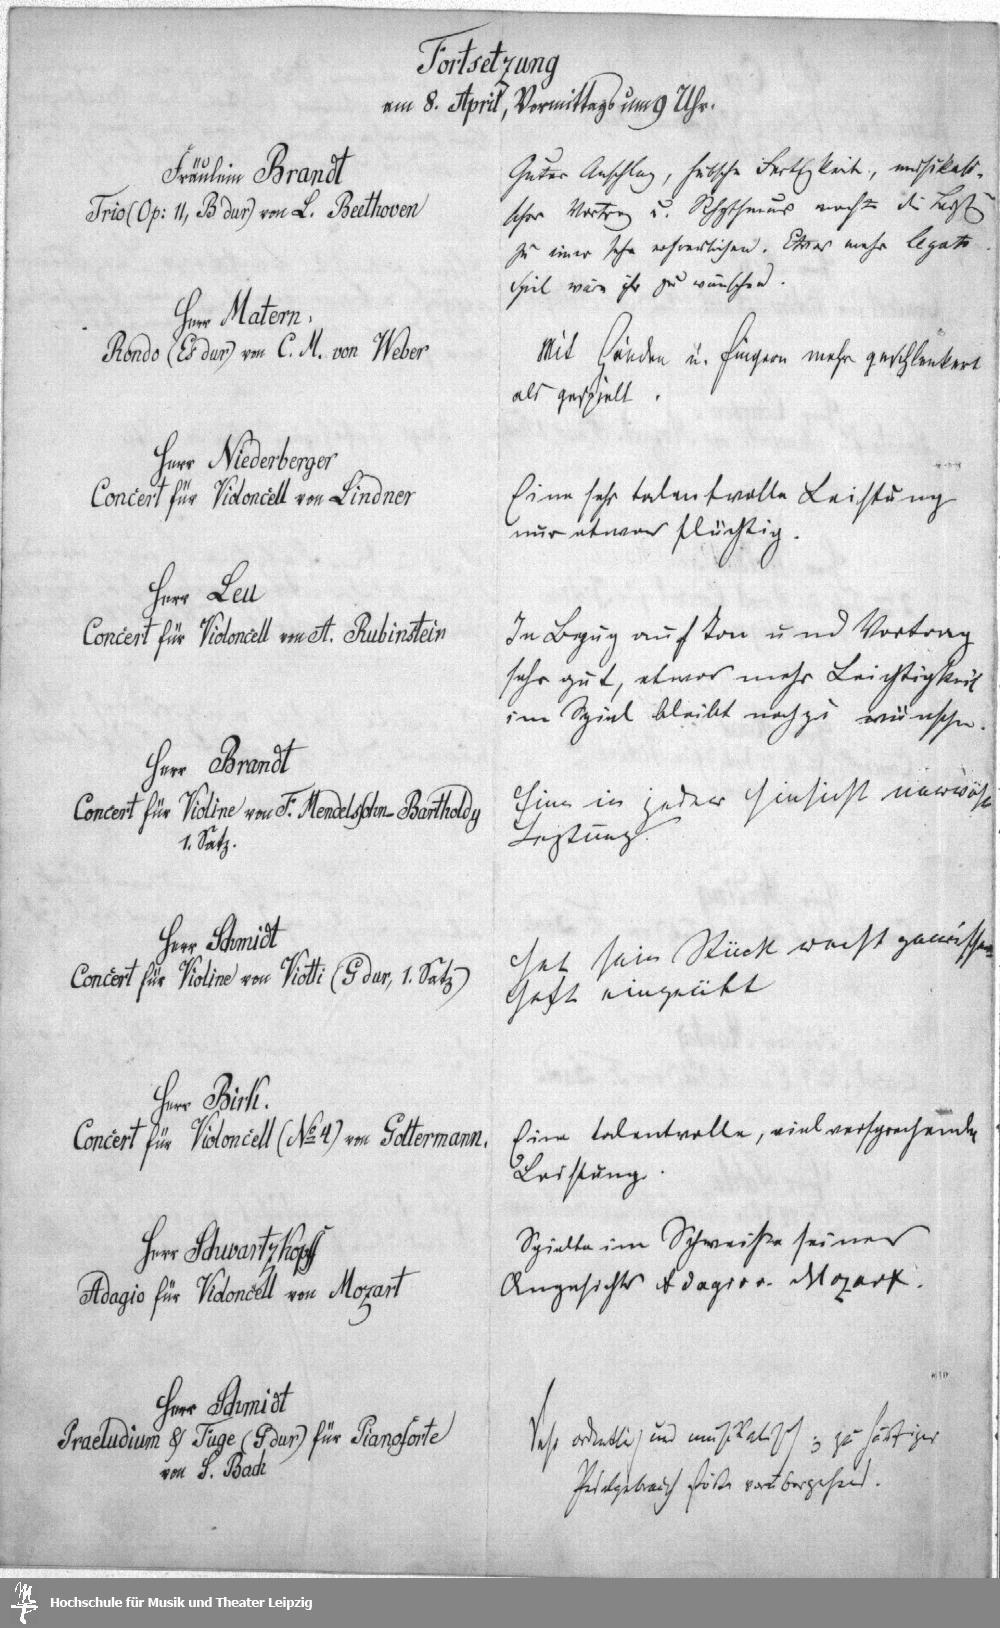 Fortsetzung
am 8. April, Vormittags um 9 Uhr.
Fräulein Brandt
Trio (Op: 11, B dur) von L. Beethoven
Guter Anschlag, hübsche Fertigkeit, musikali-
scher Vortrag u. Rhythmus macht die Leistg
zu einer sehr erfreulichen. Etwas mehr legato
spiel wäre ihr zu wünschen.
Herr Matern.
Rondo (Es dur) von C. M. von Weber
Mit Händen u. Fingern mehr geschlenkert
als gespielt.
Herr Niederberger
Concert für Violoncell von Lindner
Eine sehr talentvolle Leistung
nur etwas flüchtig.
Herr Leu
Concert für Violoncell von A. Rubinstein
In Bezug auf Ton und Vortrag
sehr gut, etwas mehr Leichtigkeit
im Spiel bleibt noch zu wünschen.
Herr Brandt
Concert für Violine von F. Mendelssohn-Bartholdy
1. Satz.
Eine in jeder Hinsicht
Leistung.
Herr Schmidt
Concert für Violine von Viotti (G dur, 1. Satz)
Hat sein Stück recht gewissen
haft eingeübt
Herr Birk.
Concert für Violoncell (No 4) von Goltermann.
Eine talentvolle, viel versprechende
Leistung.
Herr Schwartzkopff
Adagio für Violoncell von Mozart
Spielte im Schweiße seines
Angesichts Adagio v. Mozart.
Herr Schmidt
Praeludium & Fuge (G dur) für Pianoforte
von S. Bach
Sehr ordentlich und musikalisch; zu häufiger
Pedalgebrauch störte vorübergehend.
Hochschule für Musik und Theater Leipzig